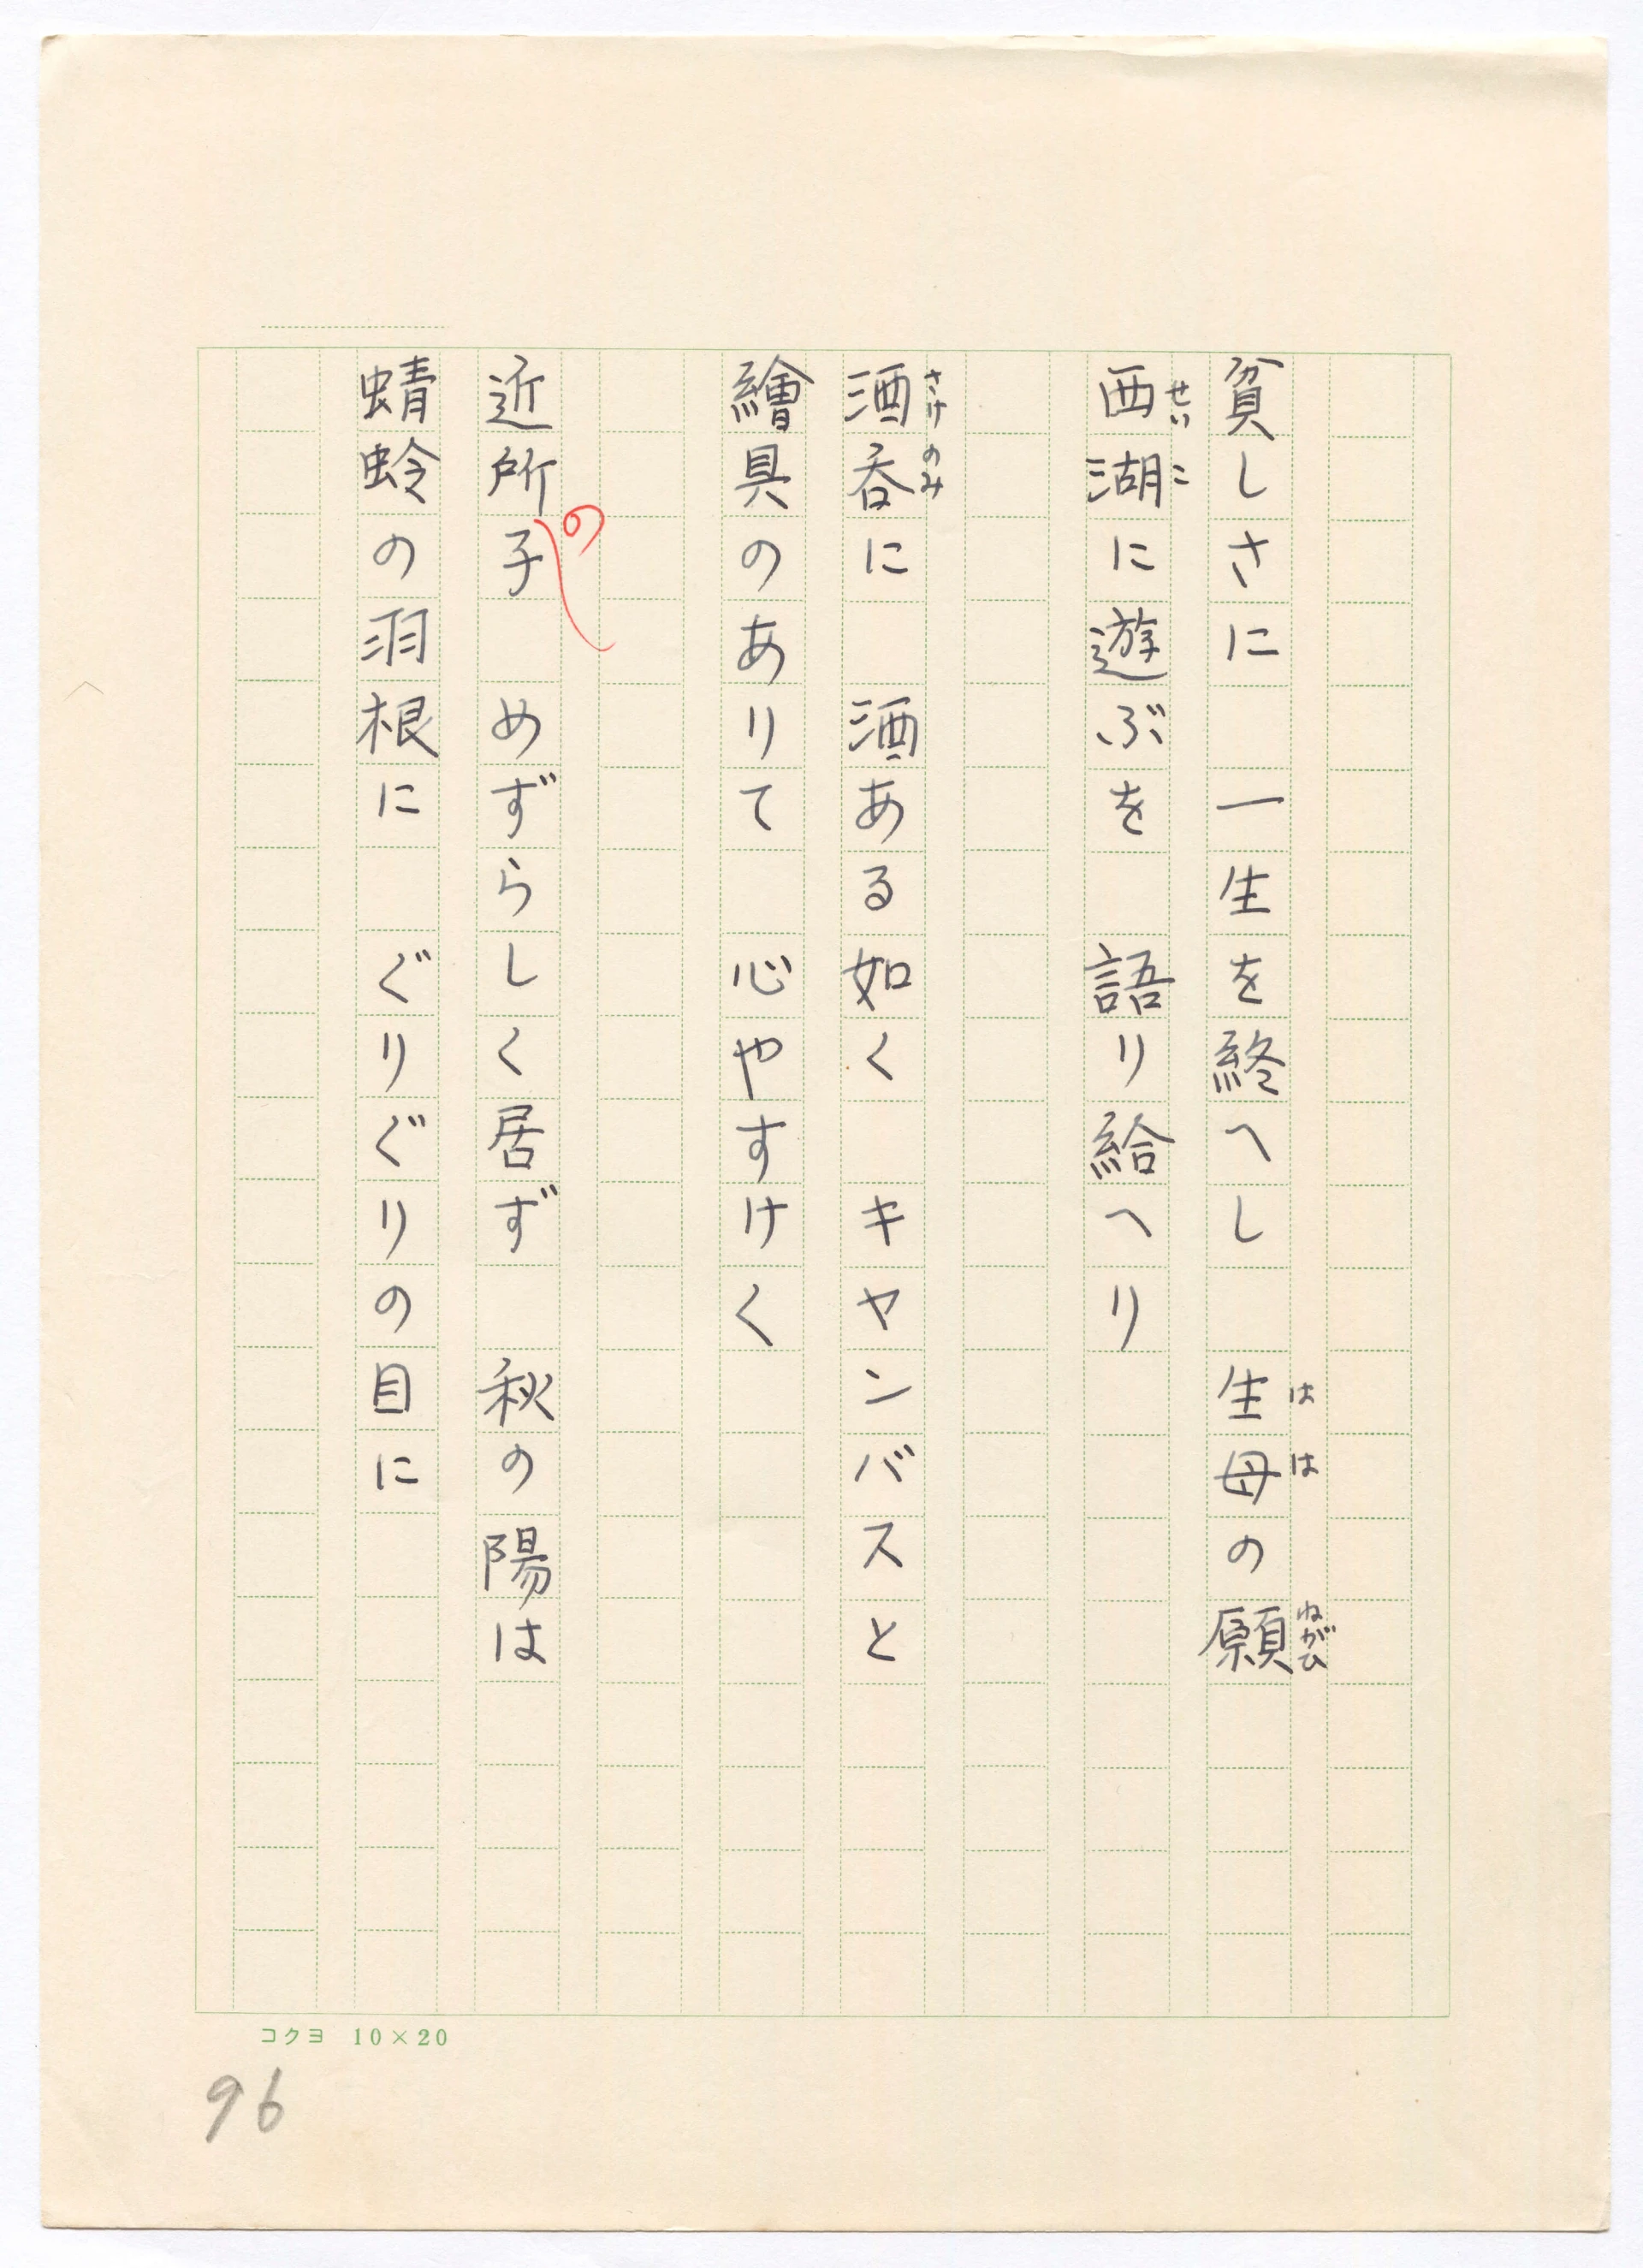 貧しさに　一生を終へし　生母の願
はは
ねがひ
西湖に遊ぶを　語り給へり
せいこ
酒呑に　酒ある如く　キヤンバスと
さけのみ
繪具のありて　心やすけく
近所子　めずらしく居ず　秋の陽は
の
蜻蛉の羽根に　ぐりぐりの目に
コクヨ 10×20
96